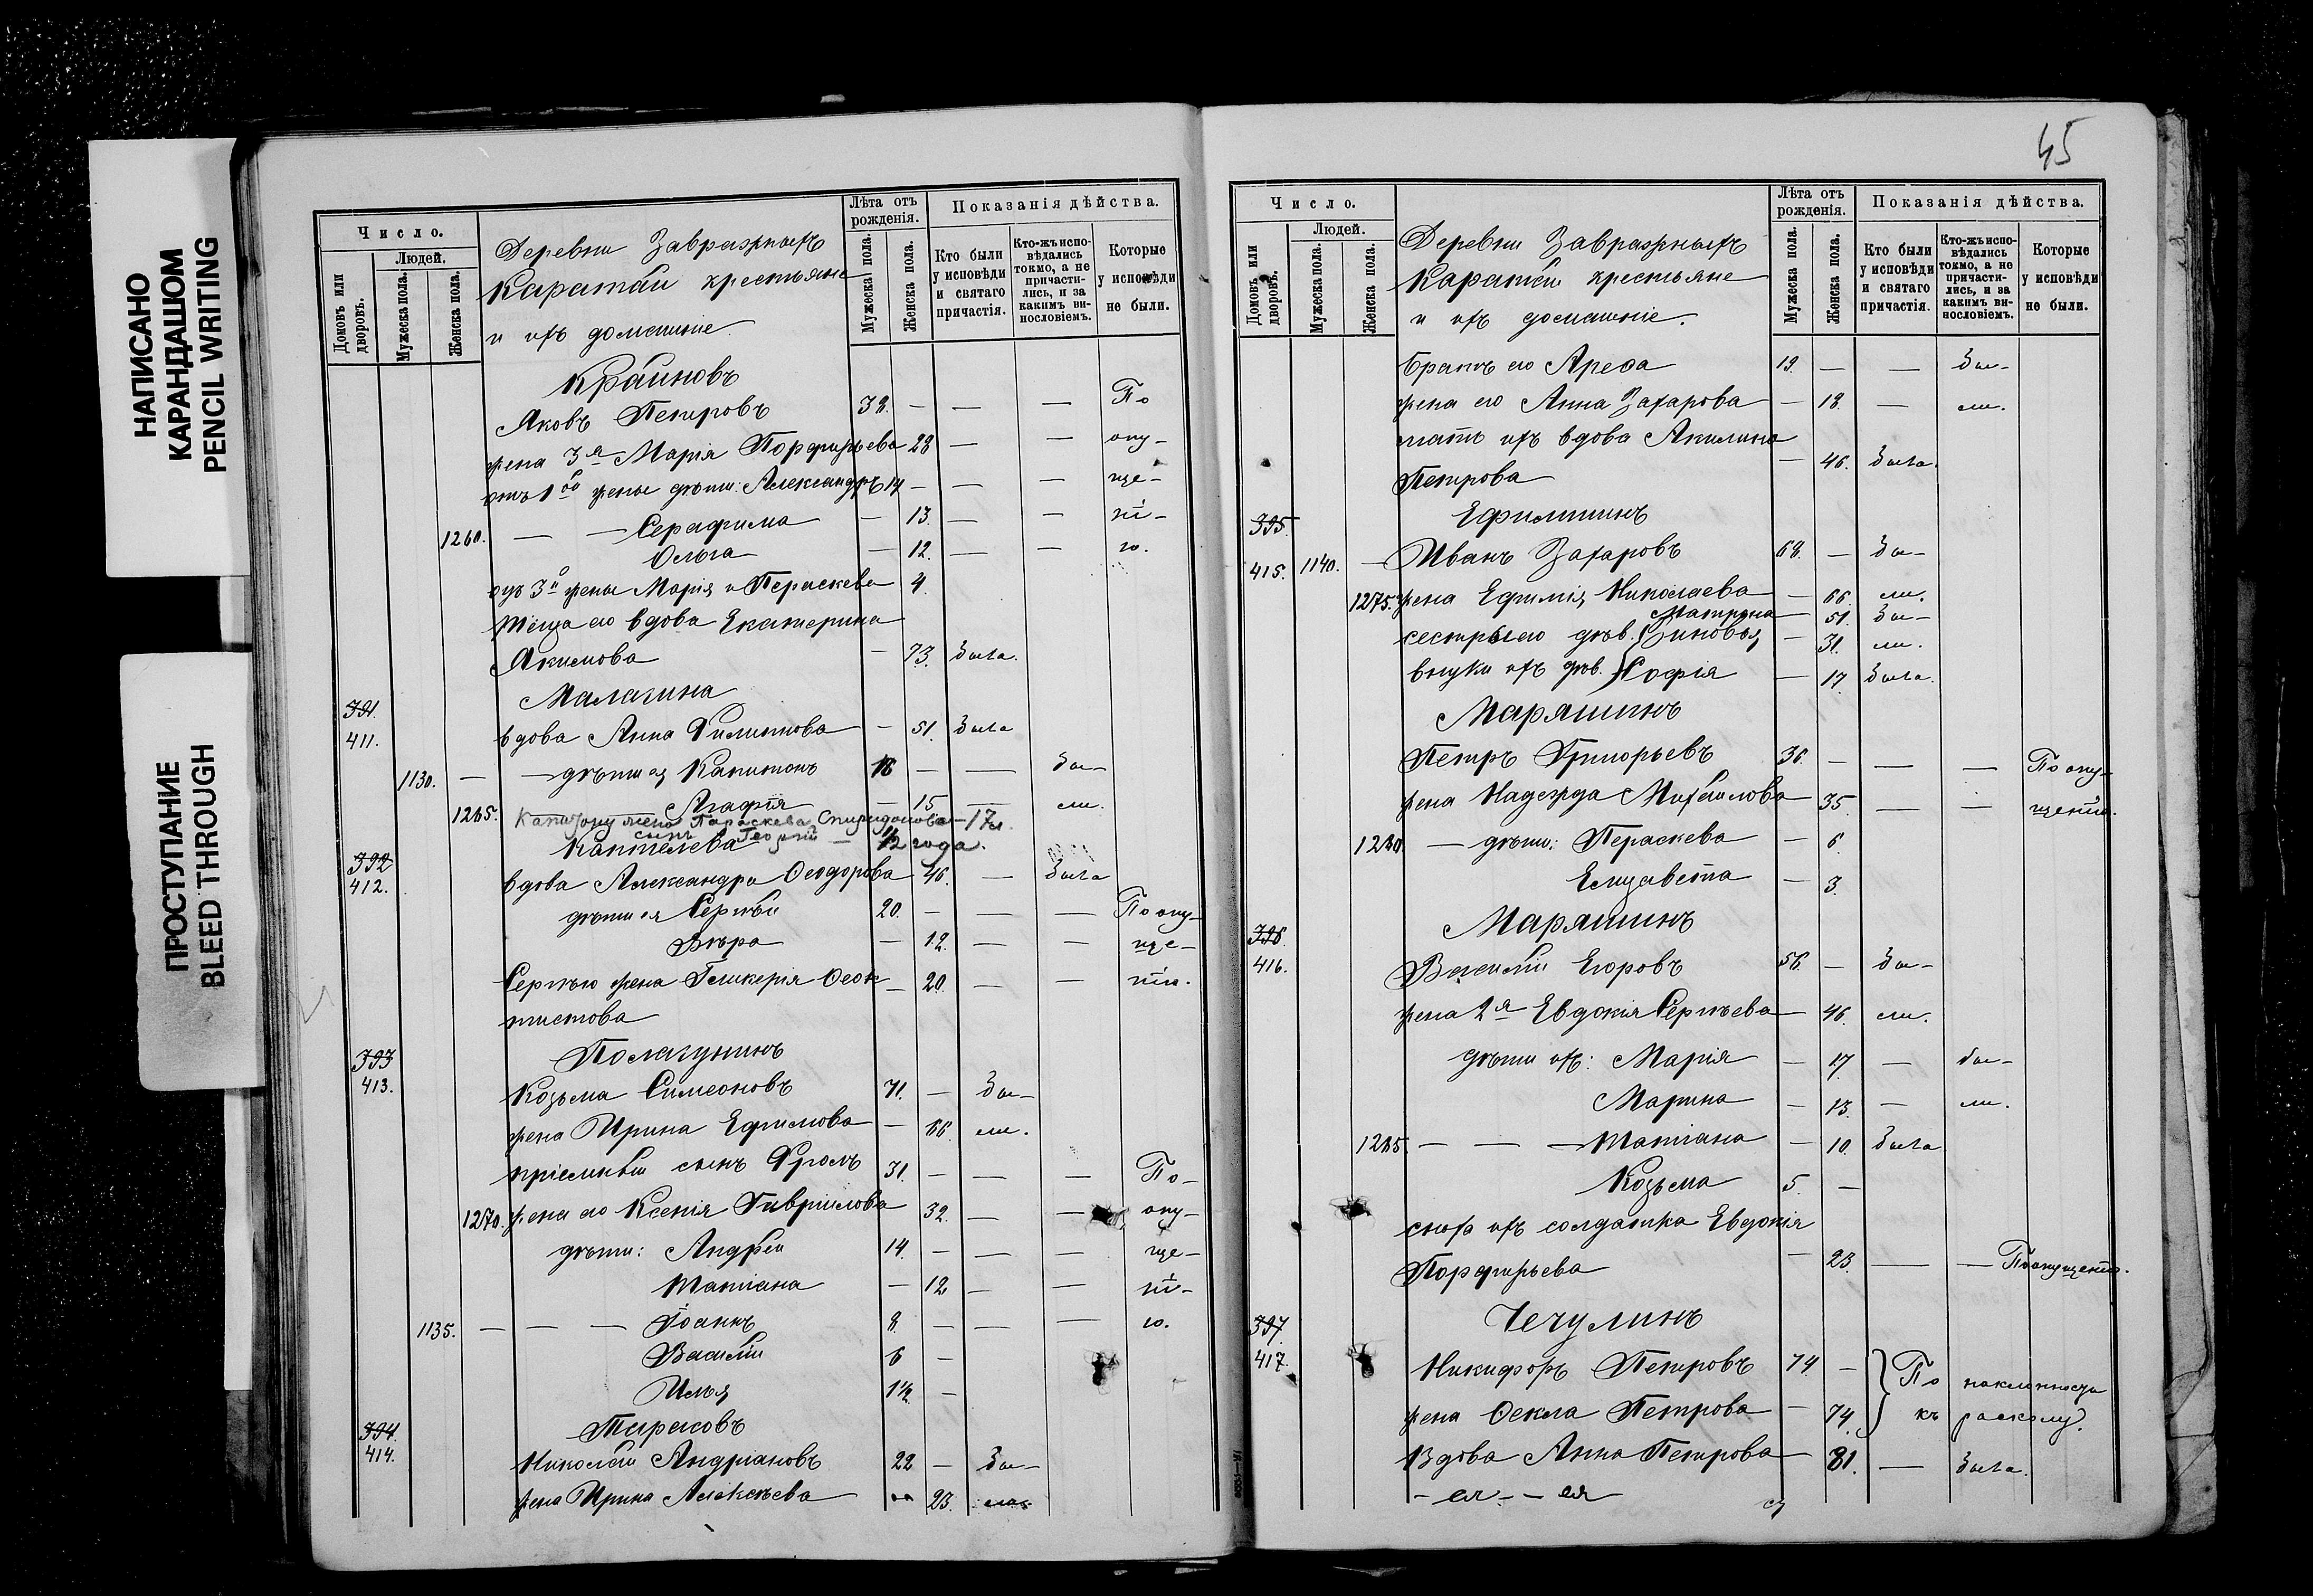 НАПИСАНО
КАРАНДАШОМ
PENCIL WRITING
ПРОСТУПАНИЕ
BLEED THROUGH
Число.
Домовъ или дворовъ.
Людей.
Мужеска пола.
Женска пола.
Деревни Завражныхъ
Каратай крестьяне
и ихъ домашніе.
Лѣта отъ рожденія.
Мужеска пола.
Женска пола.
Показанія дѣйства.
Кто были у исповѣди и святаго причастія.
Кто-жъ исповѣдались токмо, а не причастились, и за какимъ винословіемъ.
Которые у исповѣди не были.
Крайновъ
Яковъ Петровъ 38. — — — По
жена 3я Марія Порфирьева 28 — — опу-
отъ 1ой жены дѣти: Александръ 14 — — — ще-
1260. — — Серафима — 13. — — ні-
Ольга — 12. — — ю.
отъ 3й жены Марія и Параскева 4.
теща его вдова Екатерина
Якимова — 73. была.
391. Малагина
411. вдова Анна Филиппова — 51. была
1130. — — дѣти ея Капитонъ 18 — — бы-
1265. Агафія — 15 — ли.
Капитону жена Параскева Спиридонова — 17 л.
сынъ Георгій — 1/2 года.
392 Каптелева
412. вдова Александра Ѳеодорова 46. — была
дѣти ея Сергѣй 20. — — — По опу-
Вѣра — 12. — — ще-
Сергѣю жена Гликерія Ѳеок- — 20. — — нію.
тистова
393 Полагунинъ
413. Козьма Симеоновъ 71. — бы-
жена Ирина Ефимова — 66. ли.
пріемный сынъ Фролъ 31. — — — По-
1270. жена его Ксенія Гавріилова 32. — — опу-
дѣти: Андрей 14. — — — ще-
Татіана — 12 — — ні-
1135. — — — Іоаннъ 8. — — — ю.
Василій 6 —
Илья 1 1/2. —
394. Тарасовъ
414. Николай Андріановъ 22 — бы-
жена Ирина Алексѣева 23. ли.
45
Число.
Домовъ или дворовъ.
Людей.
Мужеска пола.
Женска пола.
Деревни Завражныхъ
Каратай крестьяне
и ихъ домашніе.
Лѣта отъ рожденія.
Мужеска пола.
Женска пола.
Показанія дѣйства.
Кто были у исповѣди и святаго причастія.
Кто-жъ исповѣдались токмо, а не причастились, и за какимъ винословіемъ.
Которые у исповѣди не были.
братъ его Ареѳа 19. — — бы-
жена его Анна Захарова — 18. — ли.
мать ихъ вдова Акилина
Петрова — 46. была.
395. Ефимшинъ
415. 1140. — Иванъ Захаровъ 68. — бы-
1275. жена Ефимія Николаева — 66. ли.
Матрона — 51. бы-
сестры его дѣв. Зиновья — 31. ли.
внука ихъ дѣв. Софія — 17. была.
Маряшинъ
Петръ Григорьевъ 36. — — — По опу-
жена Надежда Михайлова 35 — — щенію.
1280. — дѣти: Параскева — 6.
Елизавета — 3.
396. Маряшинъ
416. Василій Егоровъ 56. — бы-
жена 2я Евдокія Сергѣева 46. ли.
дѣти ихъ: Марія — 17. — бы-
Марина — 13. — ли.
1285. — — — Татіана — 10. была
Козьма 5. —
сноха ихъ солдатка Евдокія
Порфирьева — 23. — — По опущенію.
397. Чечулинъ
417. Никифоръ Петровъ 74. — По наклонности
жена Ѳекла Петрова — 74. къ расколу.
Вдова Анна Петрова 81. — была.